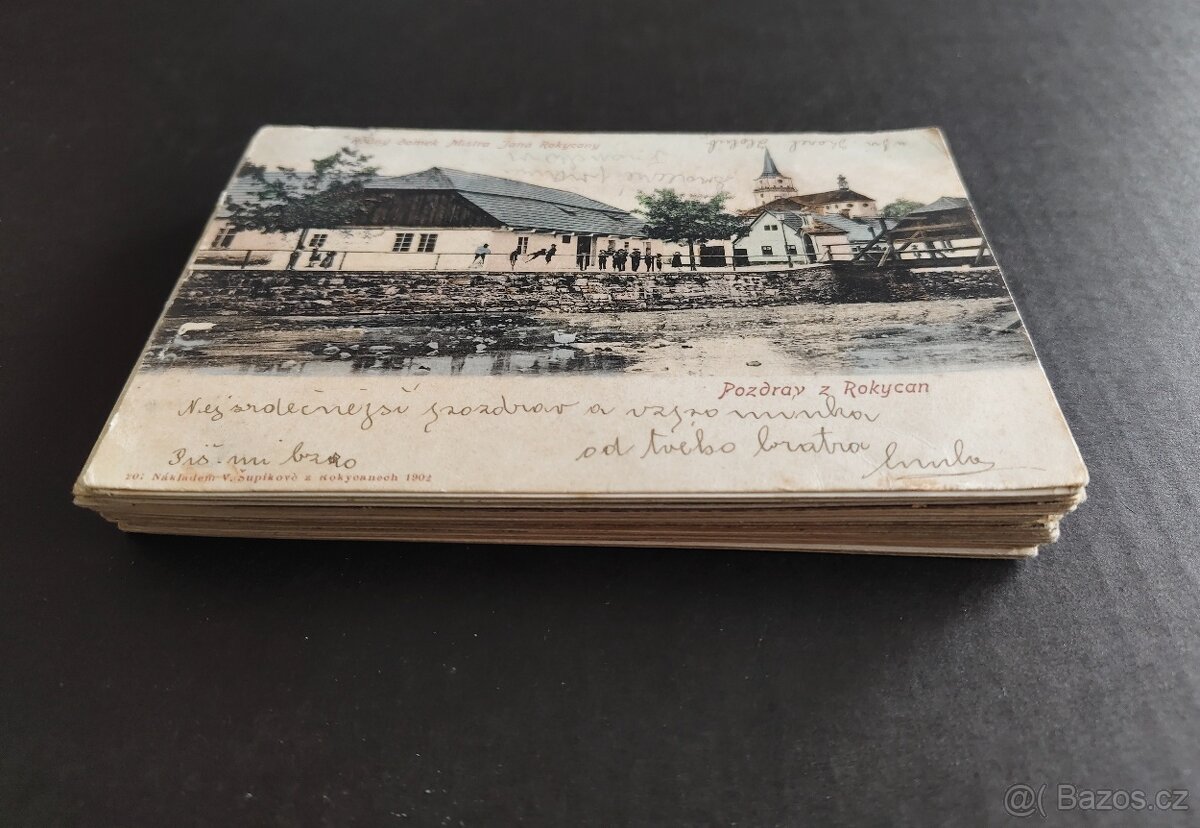 Rodný domek Mistra Jana Rokycany
Pozdrav z Rokycan
Nejsrdečnější pozdrav a vzpomínka
Piš mi brzo od tvého bratra
20: Nákladem V. Šupíkově z Rokycanech 1902
@( Bazos.cz